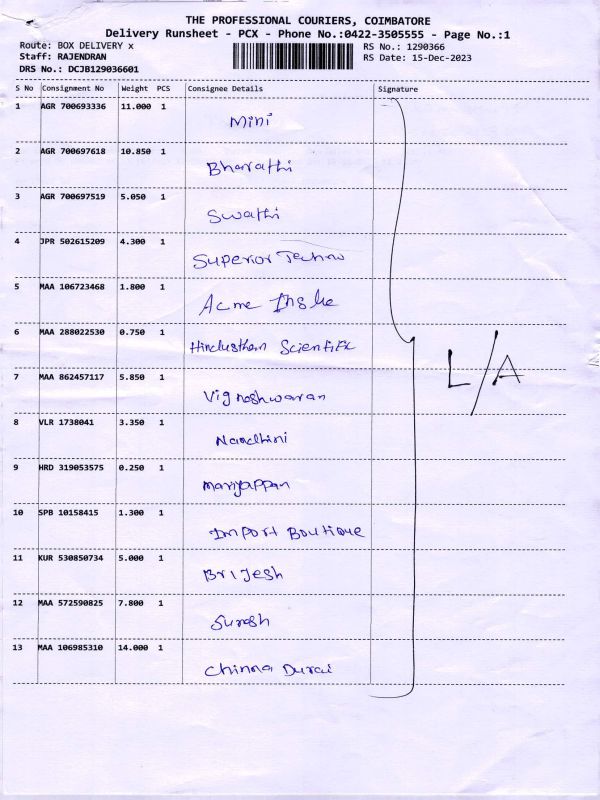 THE PROFESSIONAL COURIERS, COIMBATORE
Delivery Runsheet - PCX - Phone No.:0422-3505555 - Page No.:1
Route: BOX DELIVERY x RS No.: 1290366
Staff: RAJENDRAN RS Date: 15-Dec-2023
DRS No.: DCJB129036601
S No Consignment No Weight PCS Consignee Details Signature
1 AGR 700693336 11.000 1
Mini
2 AGR 700697618 10.850 1
Bharathi
3 AGR 700697519 5.050 1
Swathi
4 JPR 502615209 4.300 1
Superior Techno
5 MAA 106723468 1.800 1
Acme
6 MAA 288022530 0.750 1
Hindusthan Scientific
L/A
7 MAA 862457117 5.850 1
Vigneshwaran
8 VLR 1738041 3.350 1
Nandhini
9 HRD 319053575 0.250 1
Mariyappan
10 SPB 10158415 1.300 1
Import Boutique
11 KUR 530850734 5.000 1
Brijesh
12 MAA 572590825 7.800 1
Suresh
13 MAA 106985310 14.000 1
Chinna Durai